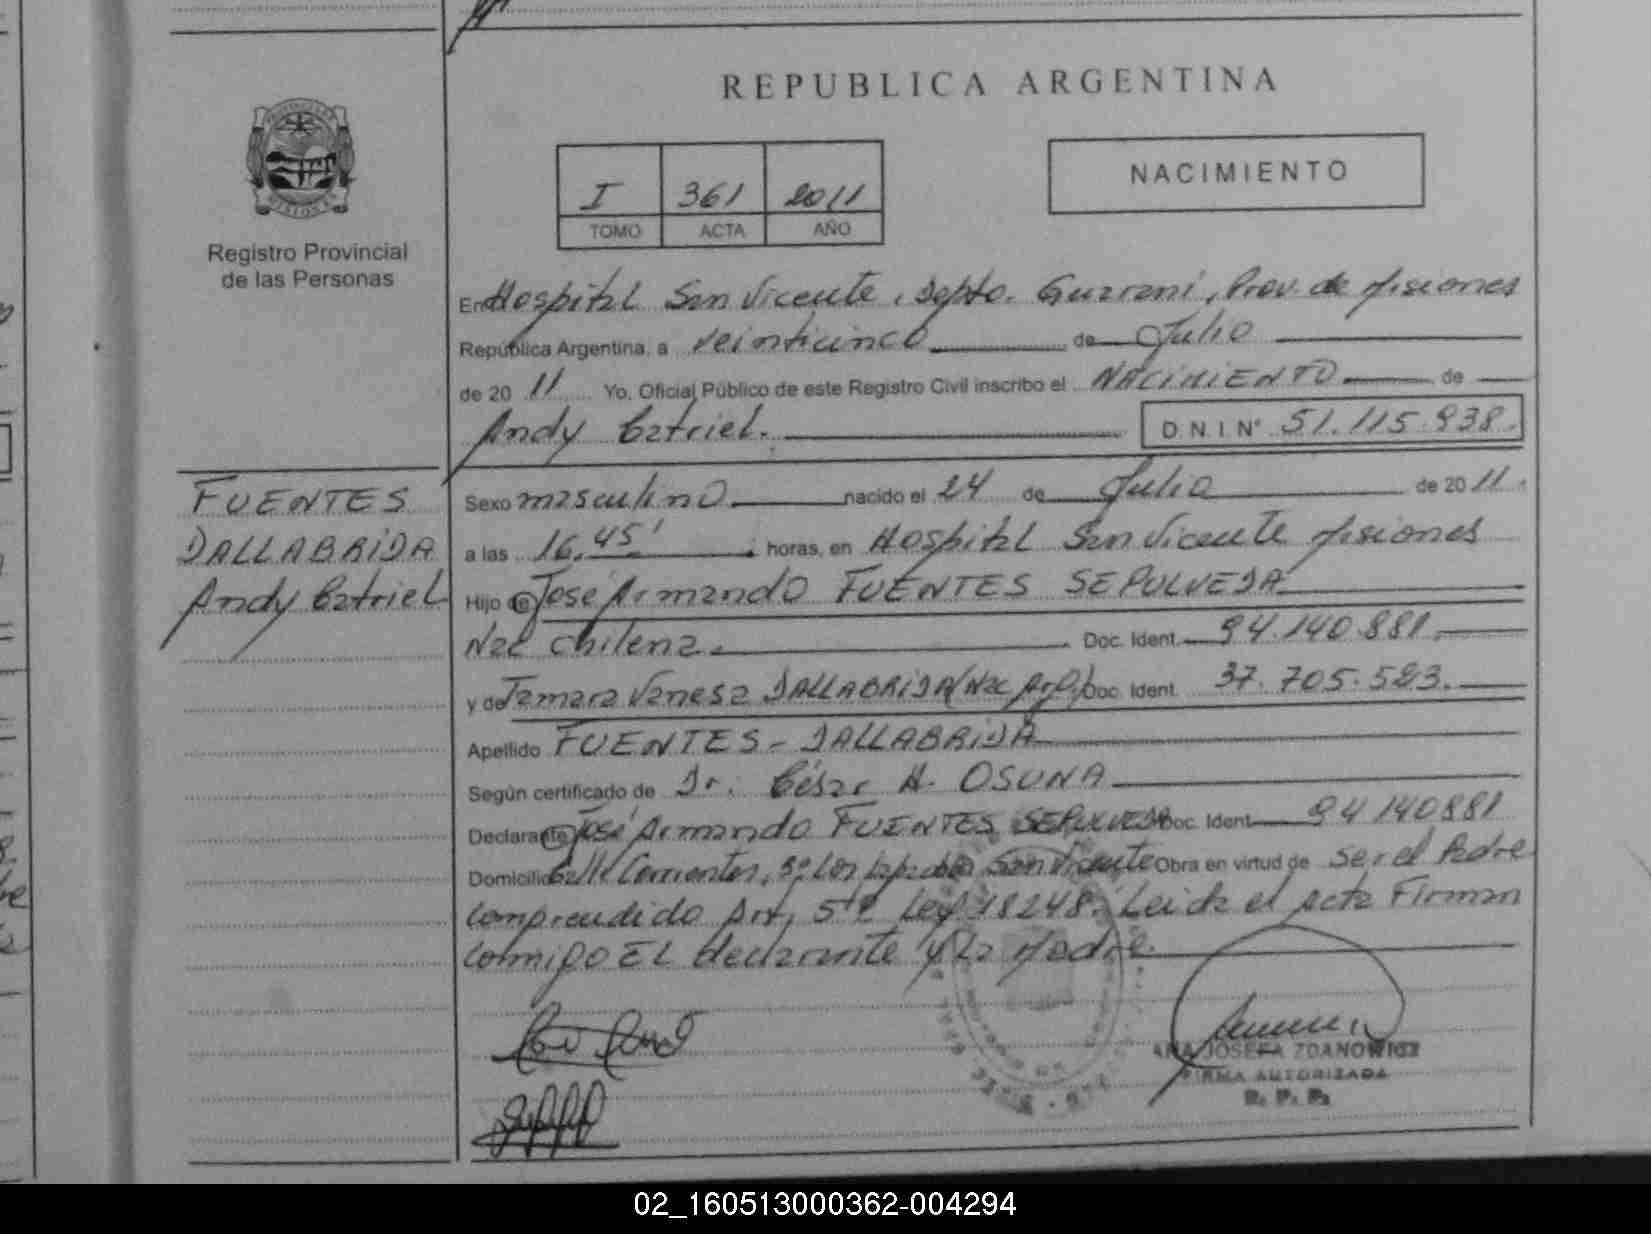 REPUBLICA ARGENTINA
I 361 2011
TOMO ACTA AÑO
NACIMIENTO
Registro Provincial
de las Personas
En Hospital San Vicente, Depto. Guaraní, Prov. de Misiones
República Argentina, a veinticinco de Julio
de 20 11 Yo, Oficial Público de este Registro Civil inscribo el NACIMIENTO de
Andy Gatriel. D. N. I. N° 51.115.938.
FUENTES
DALLABRIDA
Andy Gatriel
Sexo masculino nacido el 24 de Julio de 20 11.
a las 16.45' horas, en Hospital San Vicente Misiones
Hijo de José Armando FUENTES SEPULVEDA
Nac chilena. Doc. Ident. 94.140.881.
y de Tamara Vanesa DALLABRIDA (Nac Arg.) Doc. Ident. 37.705.523.
Apellido FUENTES - DALLABRIDA
Según certificado de Dr. César A. OSUNA
Declarante José Armando FUENTES SEPULVEDA Doc. Ident. 94140881
Domicilio Calle Corrientes, San Vicente Obra en virtud de ser el Padre
comprendido Art. 5to Ley 18248. Leida el acta Firman
conmigo EL declarante y La Madre.
ANA JOSEFA ZDANOWICZ
FIRMA AUTORIZADA
R. P. P.
02_160513000362-004294